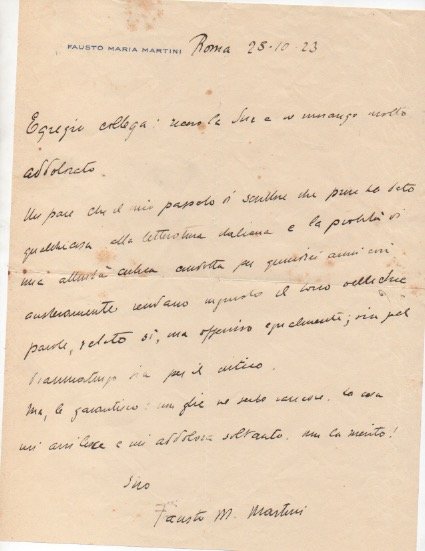 FAUSTO MARIA MARTINI Roma 28-10-23
Egregio collega: ricevo la Sua e ne rimango molto
addolorato.
Mi pare che il mio passato di scrittore che pure ha dato
qualchecosa alla letteratura italiana e la probità di
una attività critica condotta per quindici anni così
austeramente rendano ingiusto il tono delle due
parole, velato sì, ma offensivo egualmente, sia pel
drammaturgo sia per il critico.
Ma, le garantisco: non glie ne serbo rancore. La cosa
mi avvilisce e mi addolora soltanto. non la merito!
Suo
Fausto M. Martini